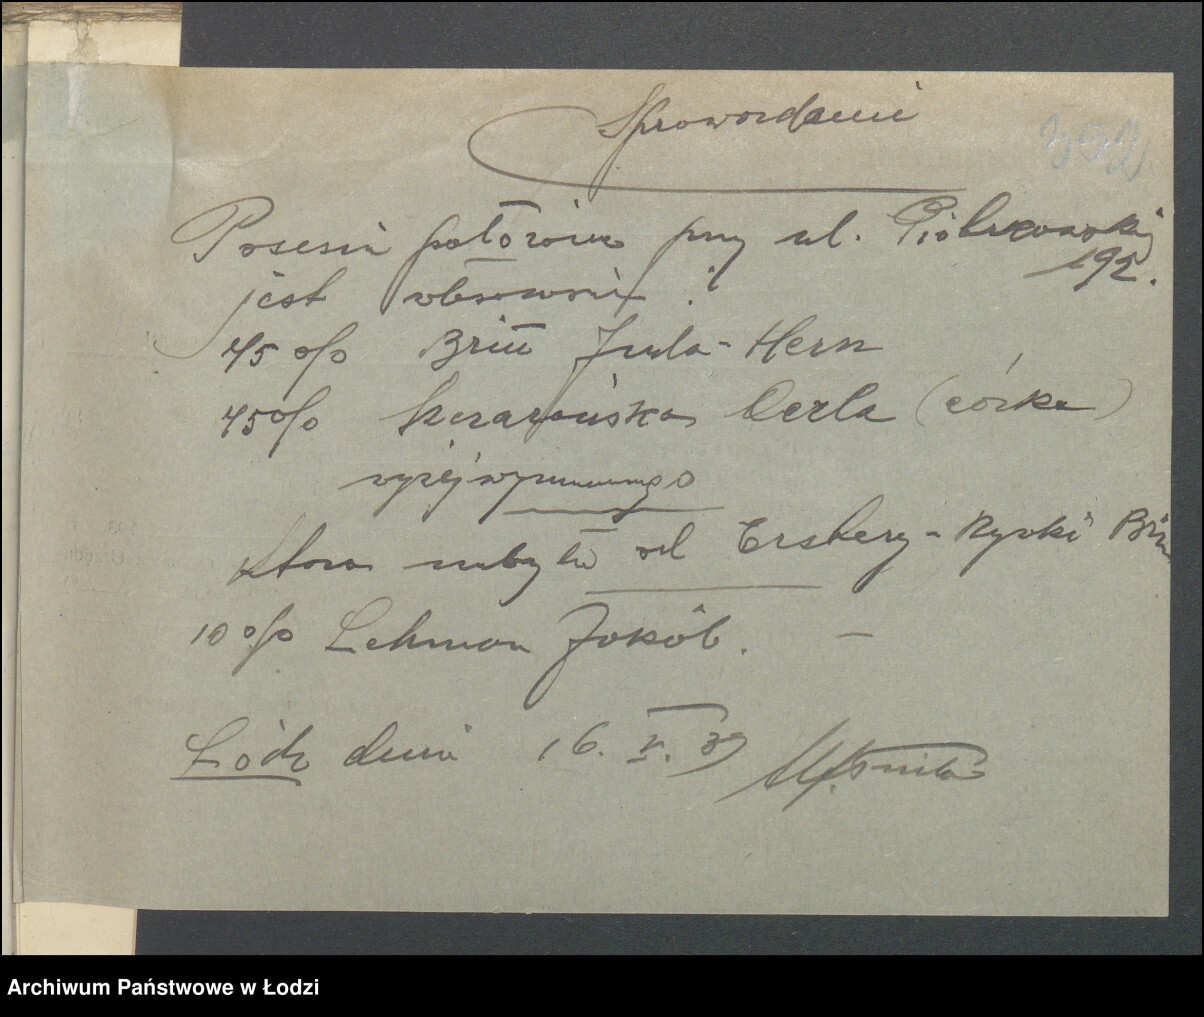 Sprawozdanie
352
Posesia położona przy ul. Piotrkowskiej
192.
jest własnością :
45 o/o Brin Juda - Hersz
45 o/o Perla (córka)
wyżej wymienionego
która nabyła od - Rywki Brin
10 o/o Lehman Jakób. —
Łódź dnia 16. V. 39
Archiwum Państwowe w Łodzi